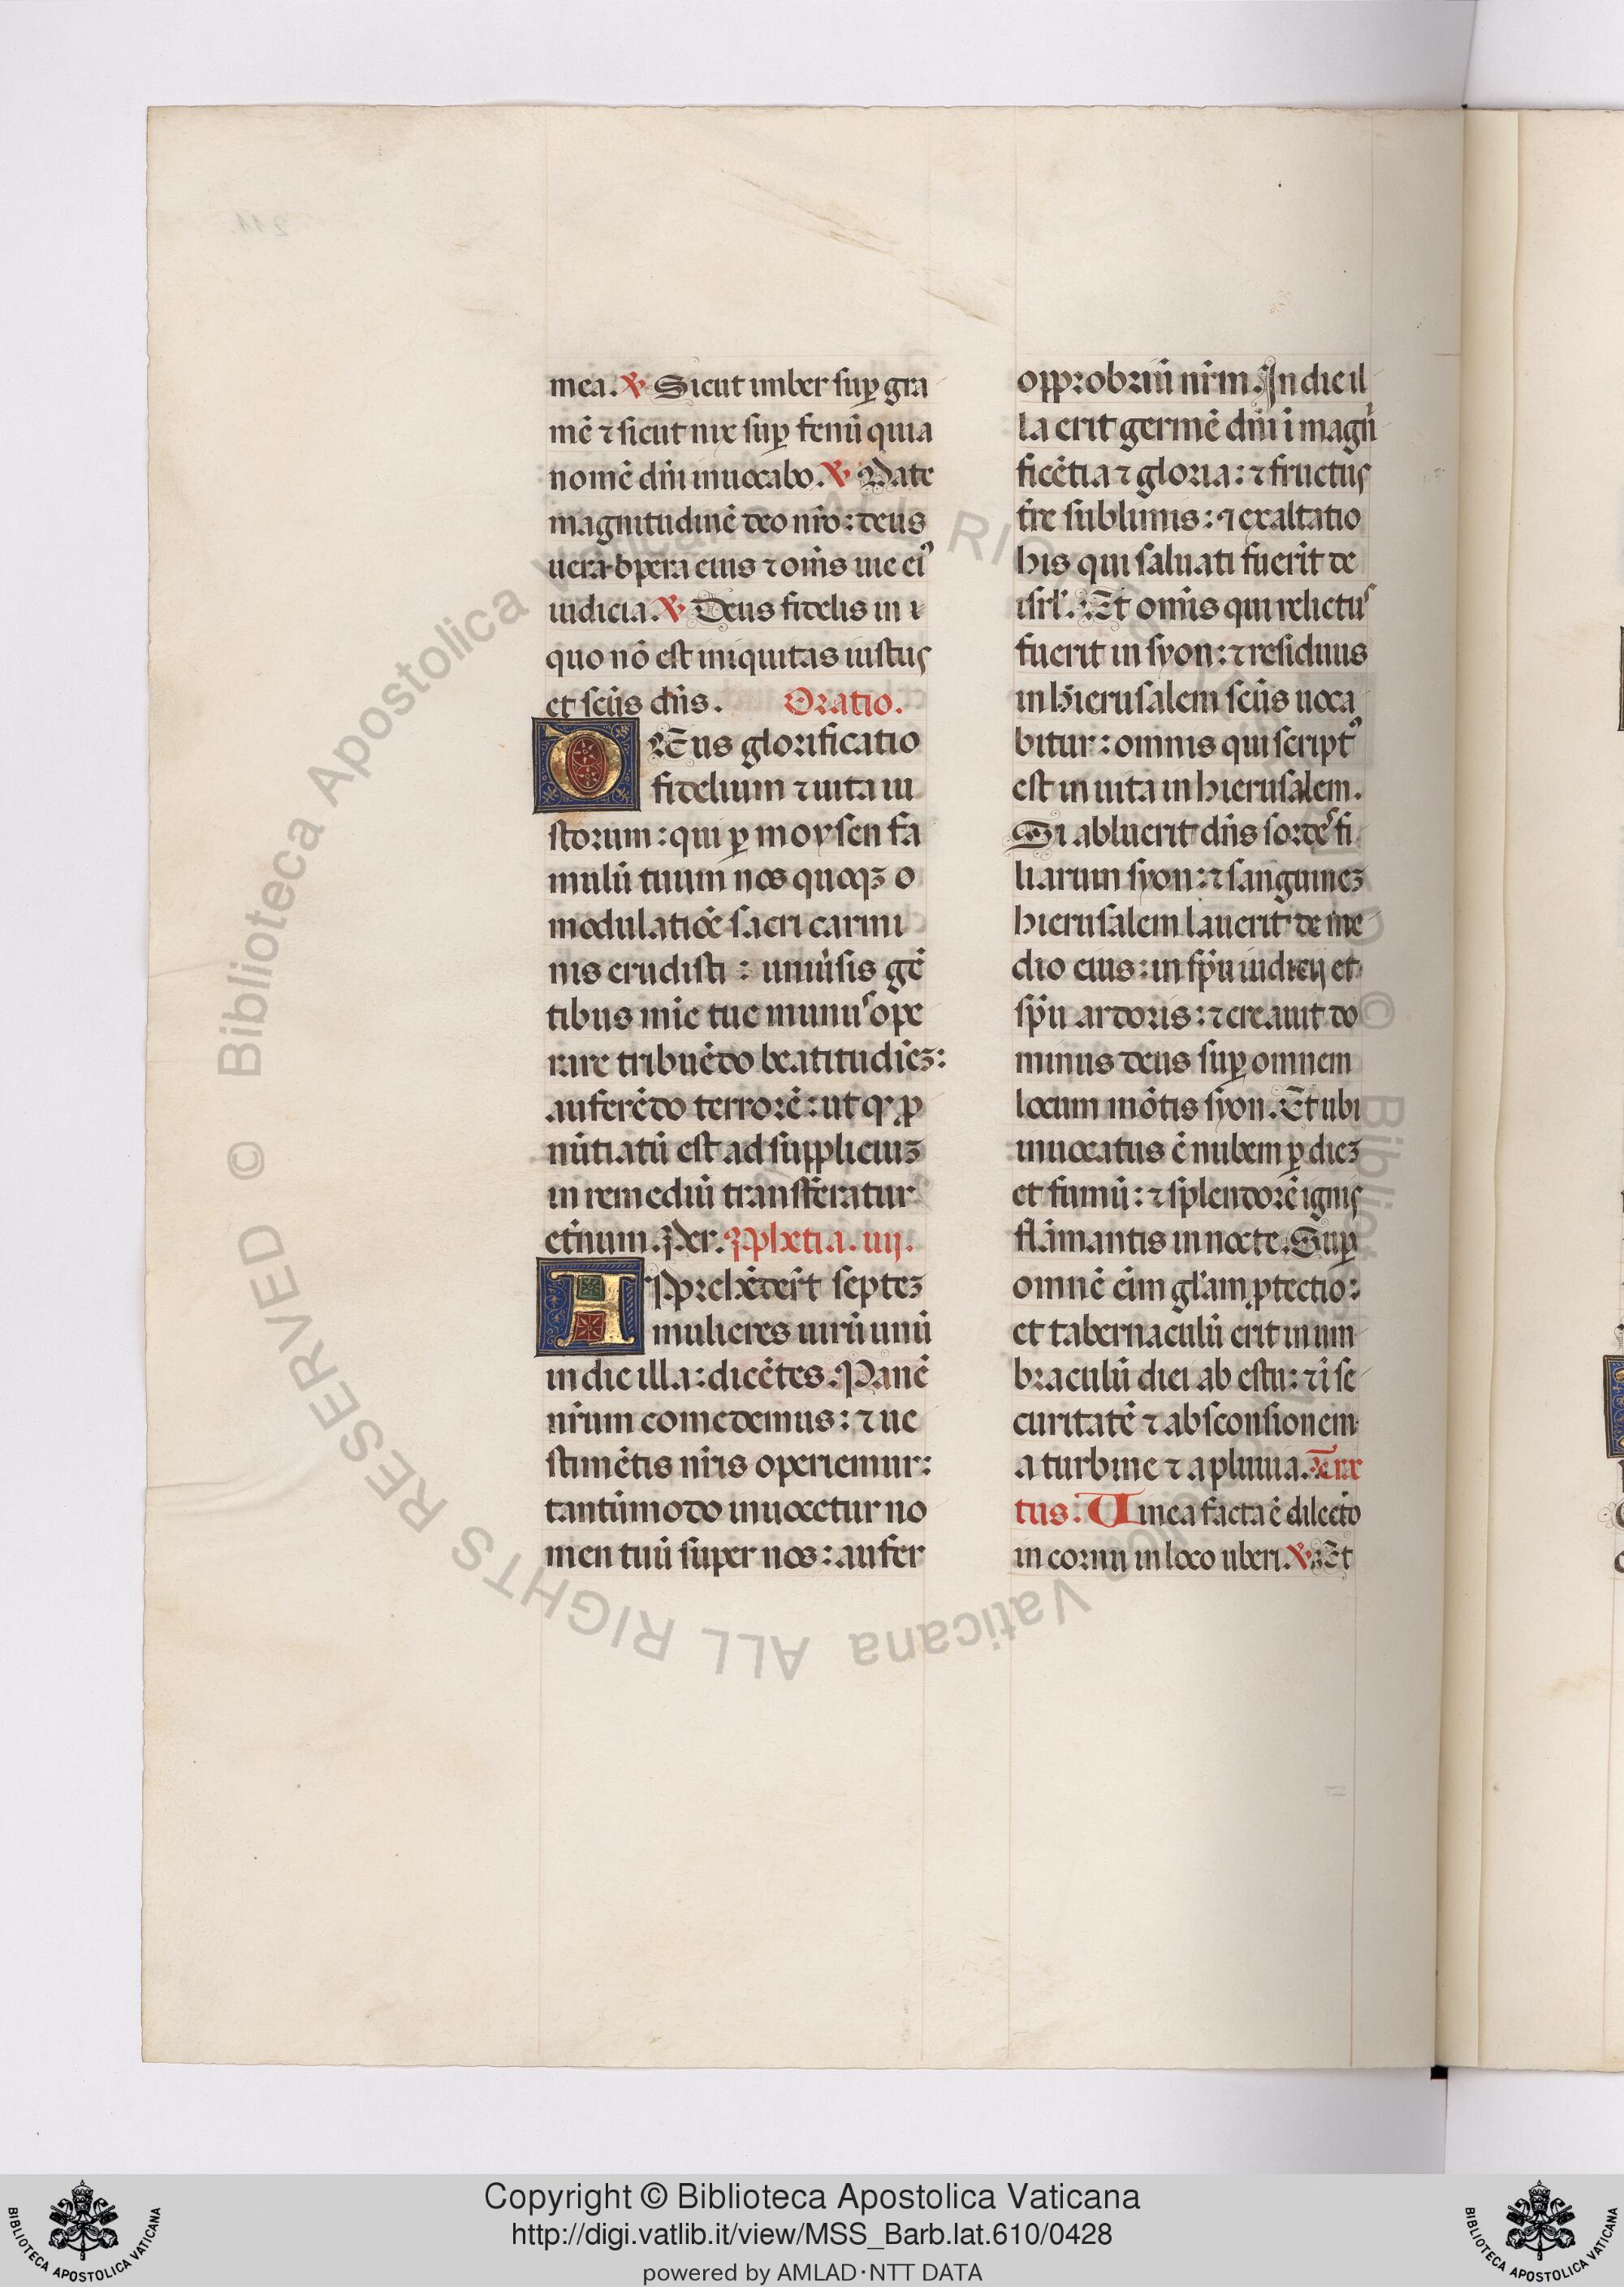 mea. ℣ Sicut imber sup̱ gra
mē ⁊ sicut nix sup̱ fenū quia
nomē dn̄i inuocabo. ℣ Date
magnitudinē deo nr̄o: deus
uera opera eius ⁊ om̄s uie eiꝰ
iudicia. ℣ Deus fidelis in
quo nō est iniquitas iustus
et sc̄us dn̄s. Oratio.
DEus glorificatio
fidelium ⁊ uita iu
storum: qui p̱ moysen fa
mulū tuum nos quoqꝫ
modulatiōe sacri carmi
nis erudisti: uniūsis gē
tibus mīe tue munus ope
rare tribuēdo beatitudiēꝫ:
auferēdo terrorē: ut qꝛ ꝓ
nūtiatū est ad suppliciuꝫ
in remediū transferatur
et̄num. Per. Ꝓphetia. iiij.
APprehēder̄t septeꝫ
mulieres uirū unū
in die illa: dicētes. Panē
nr̄um comedemus: ⁊ ue
stimētis nr̄is operiemur:
tantūmodo inuocetur no
men tuū super nos: aufer
opprobriū nr̄m. In die il
la erit germē dn̄i ī magni
ficētia ⁊ gloria: ⁊ fructus
tr̄e sublimis: ⁊ exaltatio
his qui saluati fuerīt de
isrl̄. Et omīs qui relictus
fuerit in syon: ⁊ residuus
in hierusalem sc̄us uoca
bitur: omnis qui scriptꝰ
est in uita in hierusalem.
Si abluerit dn̄s sordes fi
liarum syon: ⁊ sanguineꝫ
hierusalem lauerit de me
dio eius: in sp̄u iudicij et
sp̄u ardoris: ⁊ creauit do
minus deus sup̱ omnem
locum mōtis syon. Et ubi
inuocatus ē nubem p̱ dieꝫ
et fumū: ⁊ splendorē ignis
flāmantis in nocte. Sup̱
omnē eīm glīam ꝓtectio:
et tabernaculū erit in um
braculū diei ab estu: ⁊ ī se
curitatē ⁊ absconsionem
a turbine ⁊ a pluuia. Tra
tus. Uinea facta ē dilecto
in cornu in loco uberi. ℣ Et
© Biblioteca Apostolica Vaticana ALL RIGHTS RESERVED
Copyright © Biblioteca Apostolica Vaticana
http://digi.vatlib.it/view/MSS_Barb.lat.610/0428
powered by AMLAD·NTT DATA
BIBLIOTECA APOSTOLICA VATICANA
BIBLIOTECA APOSTOLICA VATICANA